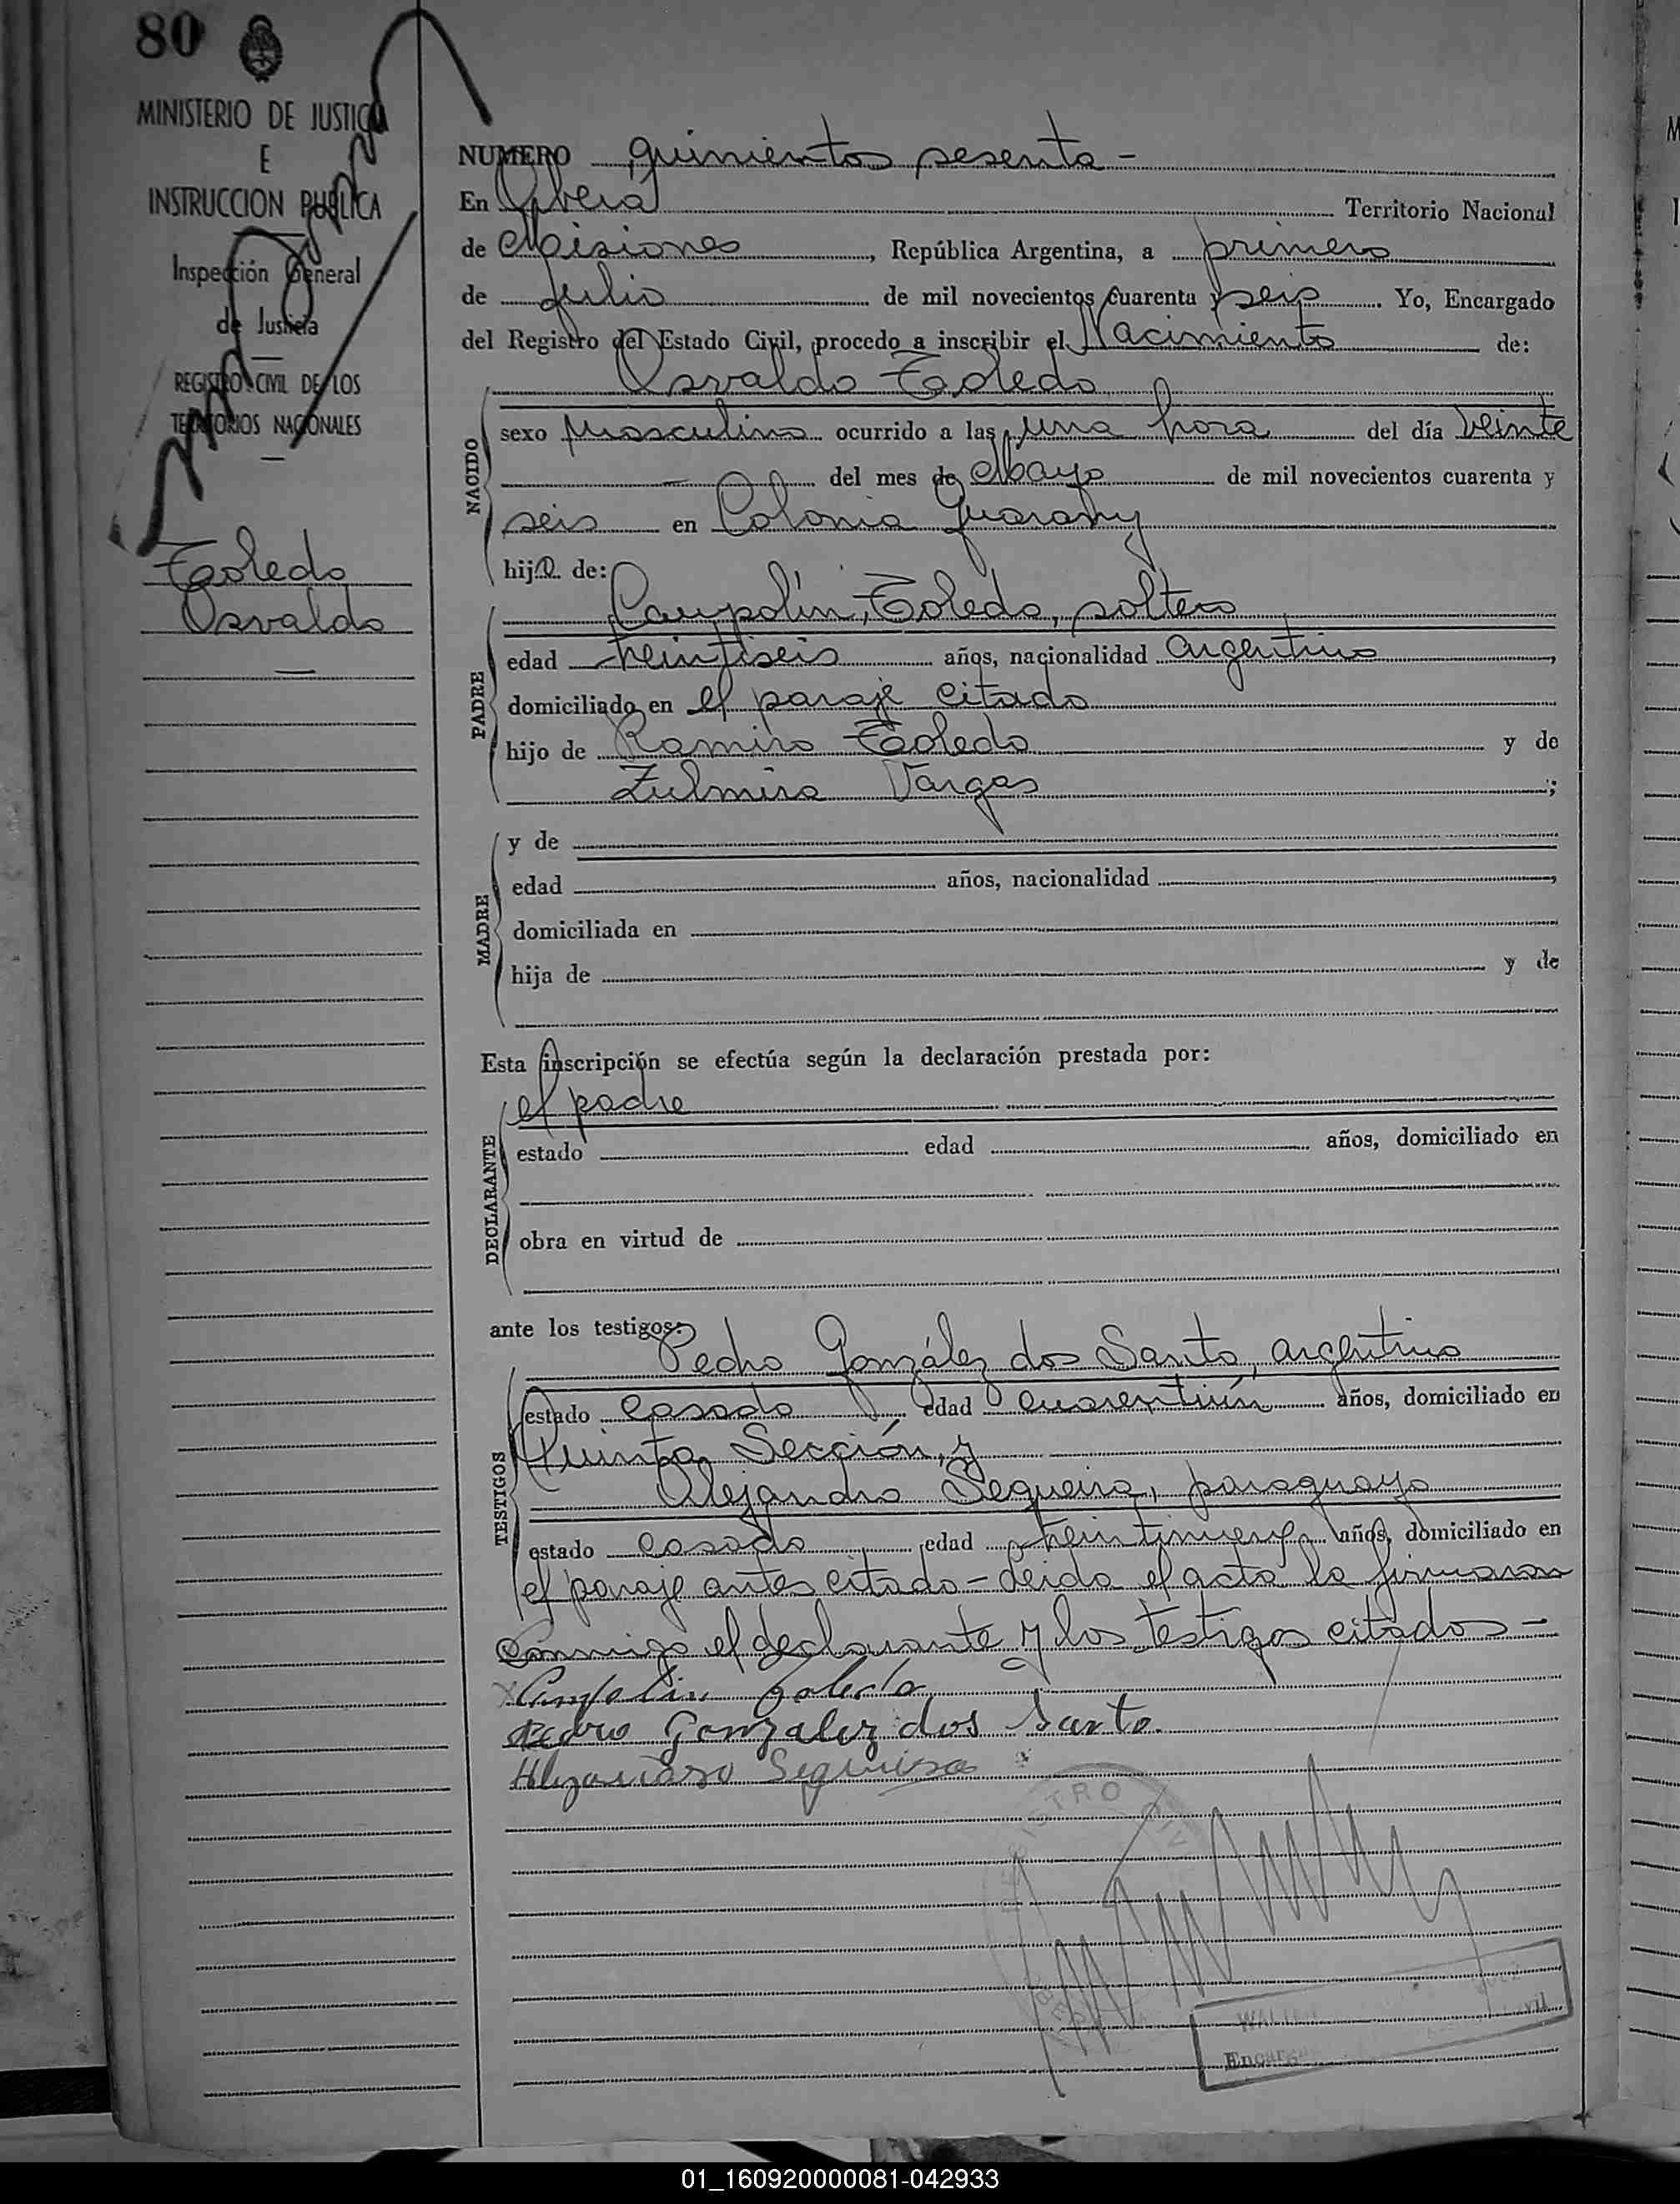 80
MINISTERIO DE JUSTICIA
E
INSTRUCCION PUBLICA
Inspección General
de Justicia
REGISTRO CIVIL DE LOS
TERRITORIOS NACIONALES
Toledo
Osvaldo
NUMERO quinientos sesenta -
En Oberá Territorio Nacional
de Misiones, República Argentina, a primero
de Julio de mil novecientos cuarenta y seis. Yo, Encargado
del Registro del Estado Civil, procedo a inscribir el Nacimiento de:
Osvaldo Toledo
NACIDO
sexo Masculino ocurrido a las una hora del día veinte
del mes de Mayo de mil novecientos cuarenta y
seis en Colonia Guarany
hijo de:
PADRE
Caupolín, Toledo, soltero
edad veintiseis años, nacionalidad argentino,
domiciliado en el paraje citado
hijo de Ramiro Toledo y de
Zulmira Vargas ;
MADRE
y de
edad años, nacionalidad ,
domiciliada en
hija de y de
Esta inscripción se efectúa según la declaración prestada por:
DECLARANTE
el padre
estado edad años, domiciliado en
obra en virtud de
ante los testigos:
TESTIGOS
Pedro González dos Santo, argentino
estado casado edad cuarentiún años, domiciliado en
Quinta Sección, y
Alejandro Segueira, paraguayo
estado casado edad veintinueve años, domiciliado en
el paraje antes citado - leida el acta la firmaron
conmigo el declarante y los testigos citados -
Toledo
Pedro Gonzalez dos Santo
REGISTRO CIVIL
Encarg
01_160920000081-042933